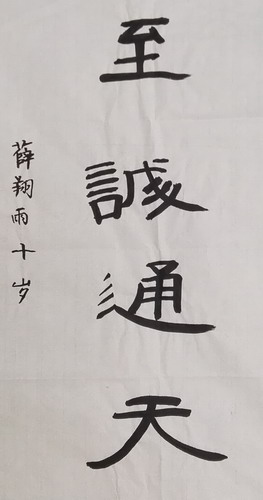 至誠通天
薛翔雨十岁